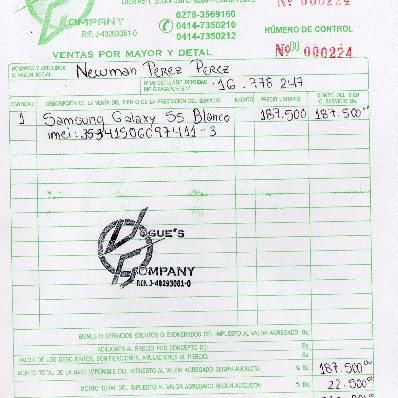 Nº 000224
0276-3569160
COMPANY 0414-7350210
RIF. J-40293081-0 0414-7350212
NÚMERO DE CONTROL
VENTAS POR MAYOR Y DETAL
Nº 00 000224
NOMBRES Y APELLIDOS O RAZÓN SOCIAL Newman Perez Perez
Nº DE CEDULA DE IDENTIDAD RIF. Ó PASAPORTE Nº 16.778.247
CANTIDAD DESCRIPCIÓN DE LA VENTA DEL BIEN O DE LA PRESTACIÓN DEL SERVICIO EXENTO PRECIO UNITARIO MONTO DEL BIEN O SERVICIO Bs.
1 Samsung Galaxy S5 Blanco 187.500 187.500 00
imei: 35341506097411-3
OGUE'S
COMPANY
RIF. J-40293081-0
BIENES O SERVICIOS EXENTOS O EXONERADOS DEL IMPUESTO AL VALOR AGREGADO Bs.
ADICIONES AL PRECIO POR CONCEPTO DE: Bs
VALOR DE LOS DESCUENTOS, BONIFICACIONES, ANULACIONES AL PRECIO: Bs
MONTO TOTAL DE LA BASE IMPONIBLE DEL IMPUESTO AL VALOR AGREGADO SEGÚN ALICUOTA: % Bs 187.500 00
MONTO TOTAL DEL IMPUESTO AL VALOR AGREGADO SEGÚN ALICUOTA: % Bs 22.500